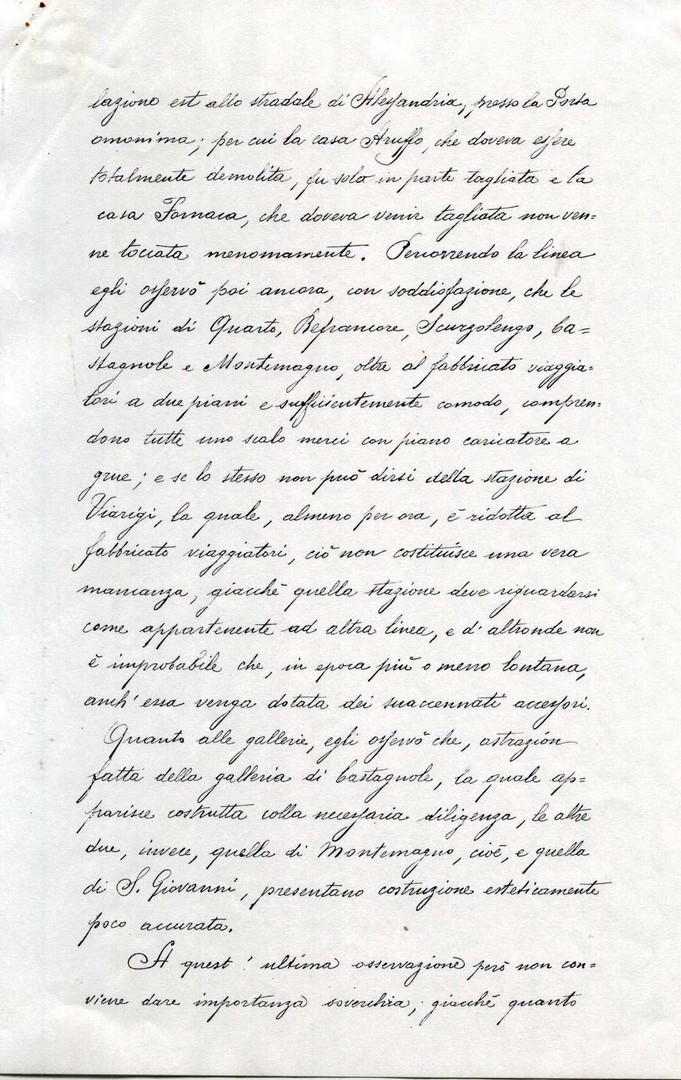 lazione est allo stradale di Alessandria, presso la Porta
omonima; per cui la casa Aruffo, che doveva essere
totalmente demolita, fu solo in parte tagliata e la
casa Fornaca, che doveva venir tagliata non ven=
ne toccata menomamente. Percorrendo la linea
egli osservò poi ancora, con soddisfazione, che le
stazioni di Quarto, Refrancore, Scurzolengo, Ca=
stagnole e Montemagno, oltre al fabbricato viaggia=
tori a due piani e sufficientemente comodo, compren=
dono tutte uno scalo merci con piano caricatore a
grue; e se lo stesso non può dirsi della stazione di
Viarigi, la quale, almeno per ora, è ridotta al
fabbricato viaggiatori, ciò non costituisce una vera
mancanza, giacchè quella stazione deve riguardarsi
come appartenente ad altra linea, e d'altronde non
è improbabile che, in epoca più o meno lontana,
anch'essa venga dotata dei suaccennati accessori.
Quanto alle gallerie, egli osservò che, astrazion
fatta della galleria di Castagnole, la quale ap=
parisce costrutta colla necessaria diligenza, le altre
due, invece, quella di Montemagno, cioè, e quella
di S. Giovanni, presentano costruzione esteticamente
poco accurata.
A quest'ultima osservazione però non con=
viene dare importanza soverchia, giacchè quanto